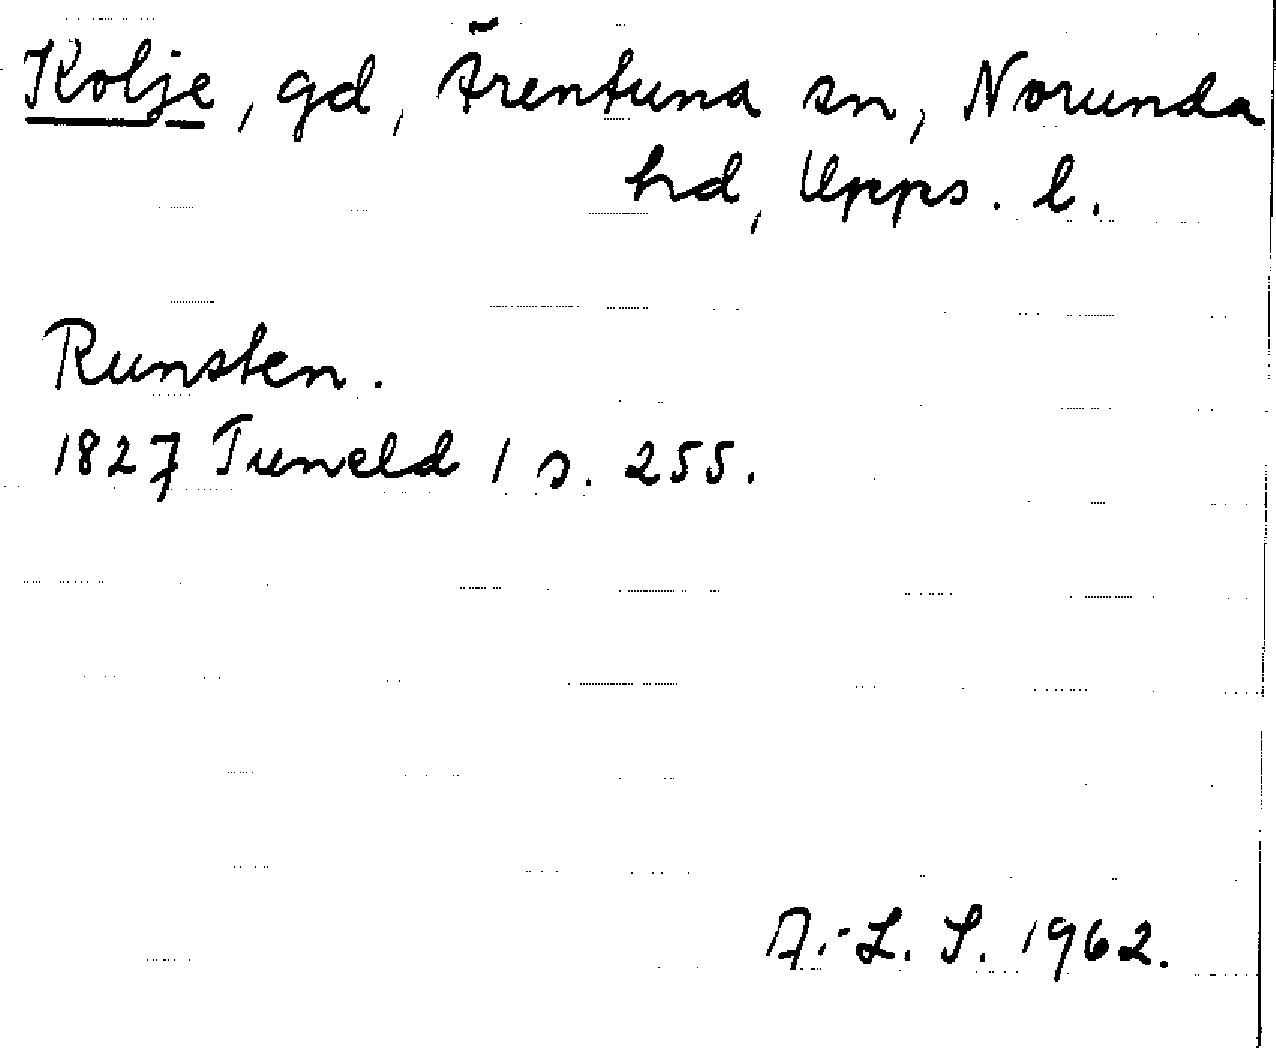 Kolje, gd, Ärentuna sn, Norunda
hd, Upps. l.
Runsten.
1827 Tuneld 1 s. 255.
A.-L. S. 1962.